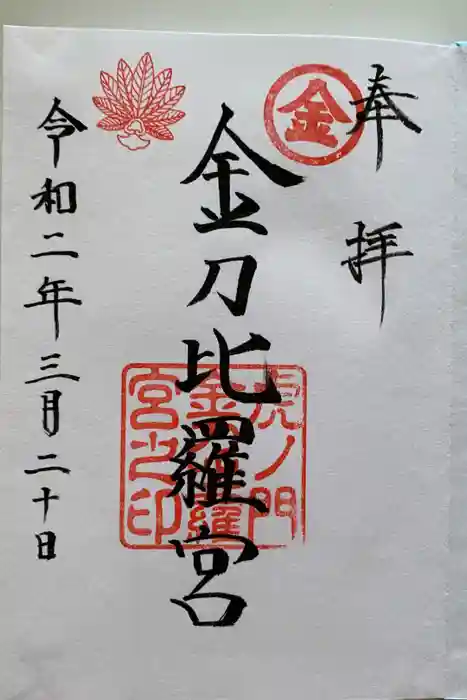 奉拝
金
金刀比羅宮
虎ノ門
金刀比羅
宮之印
令和二年三月二十日